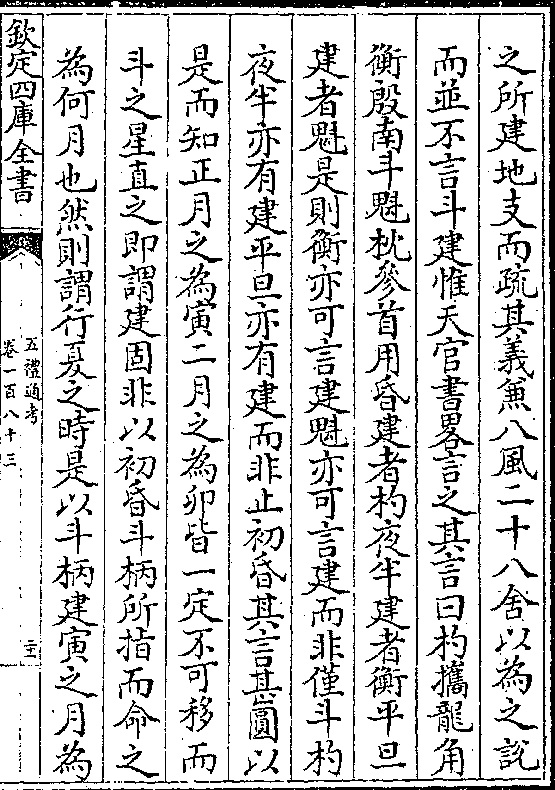 之所建地支而疏其義兼八風二十八舍以為之說
而並不言斗建惟天官書畧言之其言曰杓攜龍角
衡殷南斗魁枕參首用昏建者杓夜半建者衡平旦
建者魁是則衡亦可言建魁亦可言建而非僅斗杓
夜半亦有建平旦亦有建而非止初昏其言甚圓以
是而知正月之為寅二月之為卯皆一定不可移而
斗之星直之即謂建固非以初昏斗柄所指而命之
為何月也然則謂行夏之時是以斗柄建寅之月為
欽定四庫全書
五禮通考
卷一百八十三